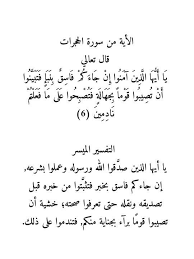 الآية من سورة الحجرات
قال تعالي
يَا أَيُّهَا الَّذِينَ آمَنُوا إِنْ جَاءَكُمْ فَاسِقٌ بِنَبَإٍ فَتَبَيَّنُوا
أَنْ تُصِيبُوا قَوْمًا بِجَهَالَةٍ فَتُصْبِحُوا عَلَى مَا فَعَلْتُمْ
نَادِمِينَ (6)
التفسير الميسر
يا أيها الذين صدَّقوا الله ورسوله وعملوا بشرعه,
إن جاءكم فاسق بخبر فتثبَّتوا من خبره قبل
تصديقه ونقله حتى تعرفوا صحته؛ خشية أن
تصيبوا قومًا برآء بجناية منكم, فتندموا على ذلك.